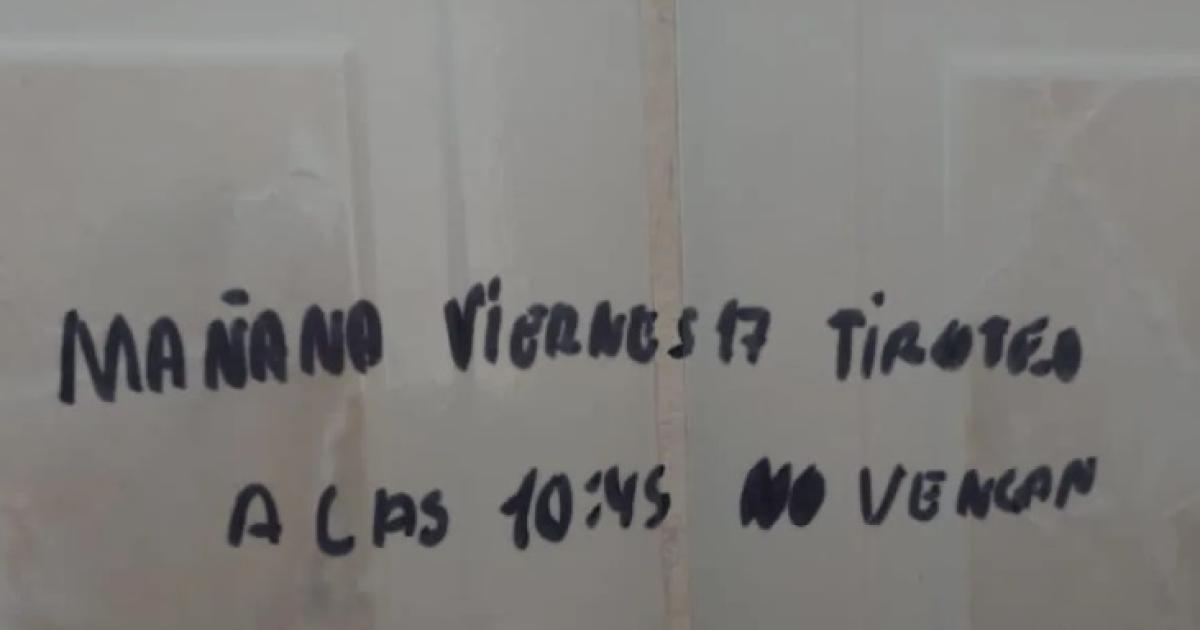 MAÑANA VIERNES 17 TIROTEO
A LAS 10:45 NO VENGAN